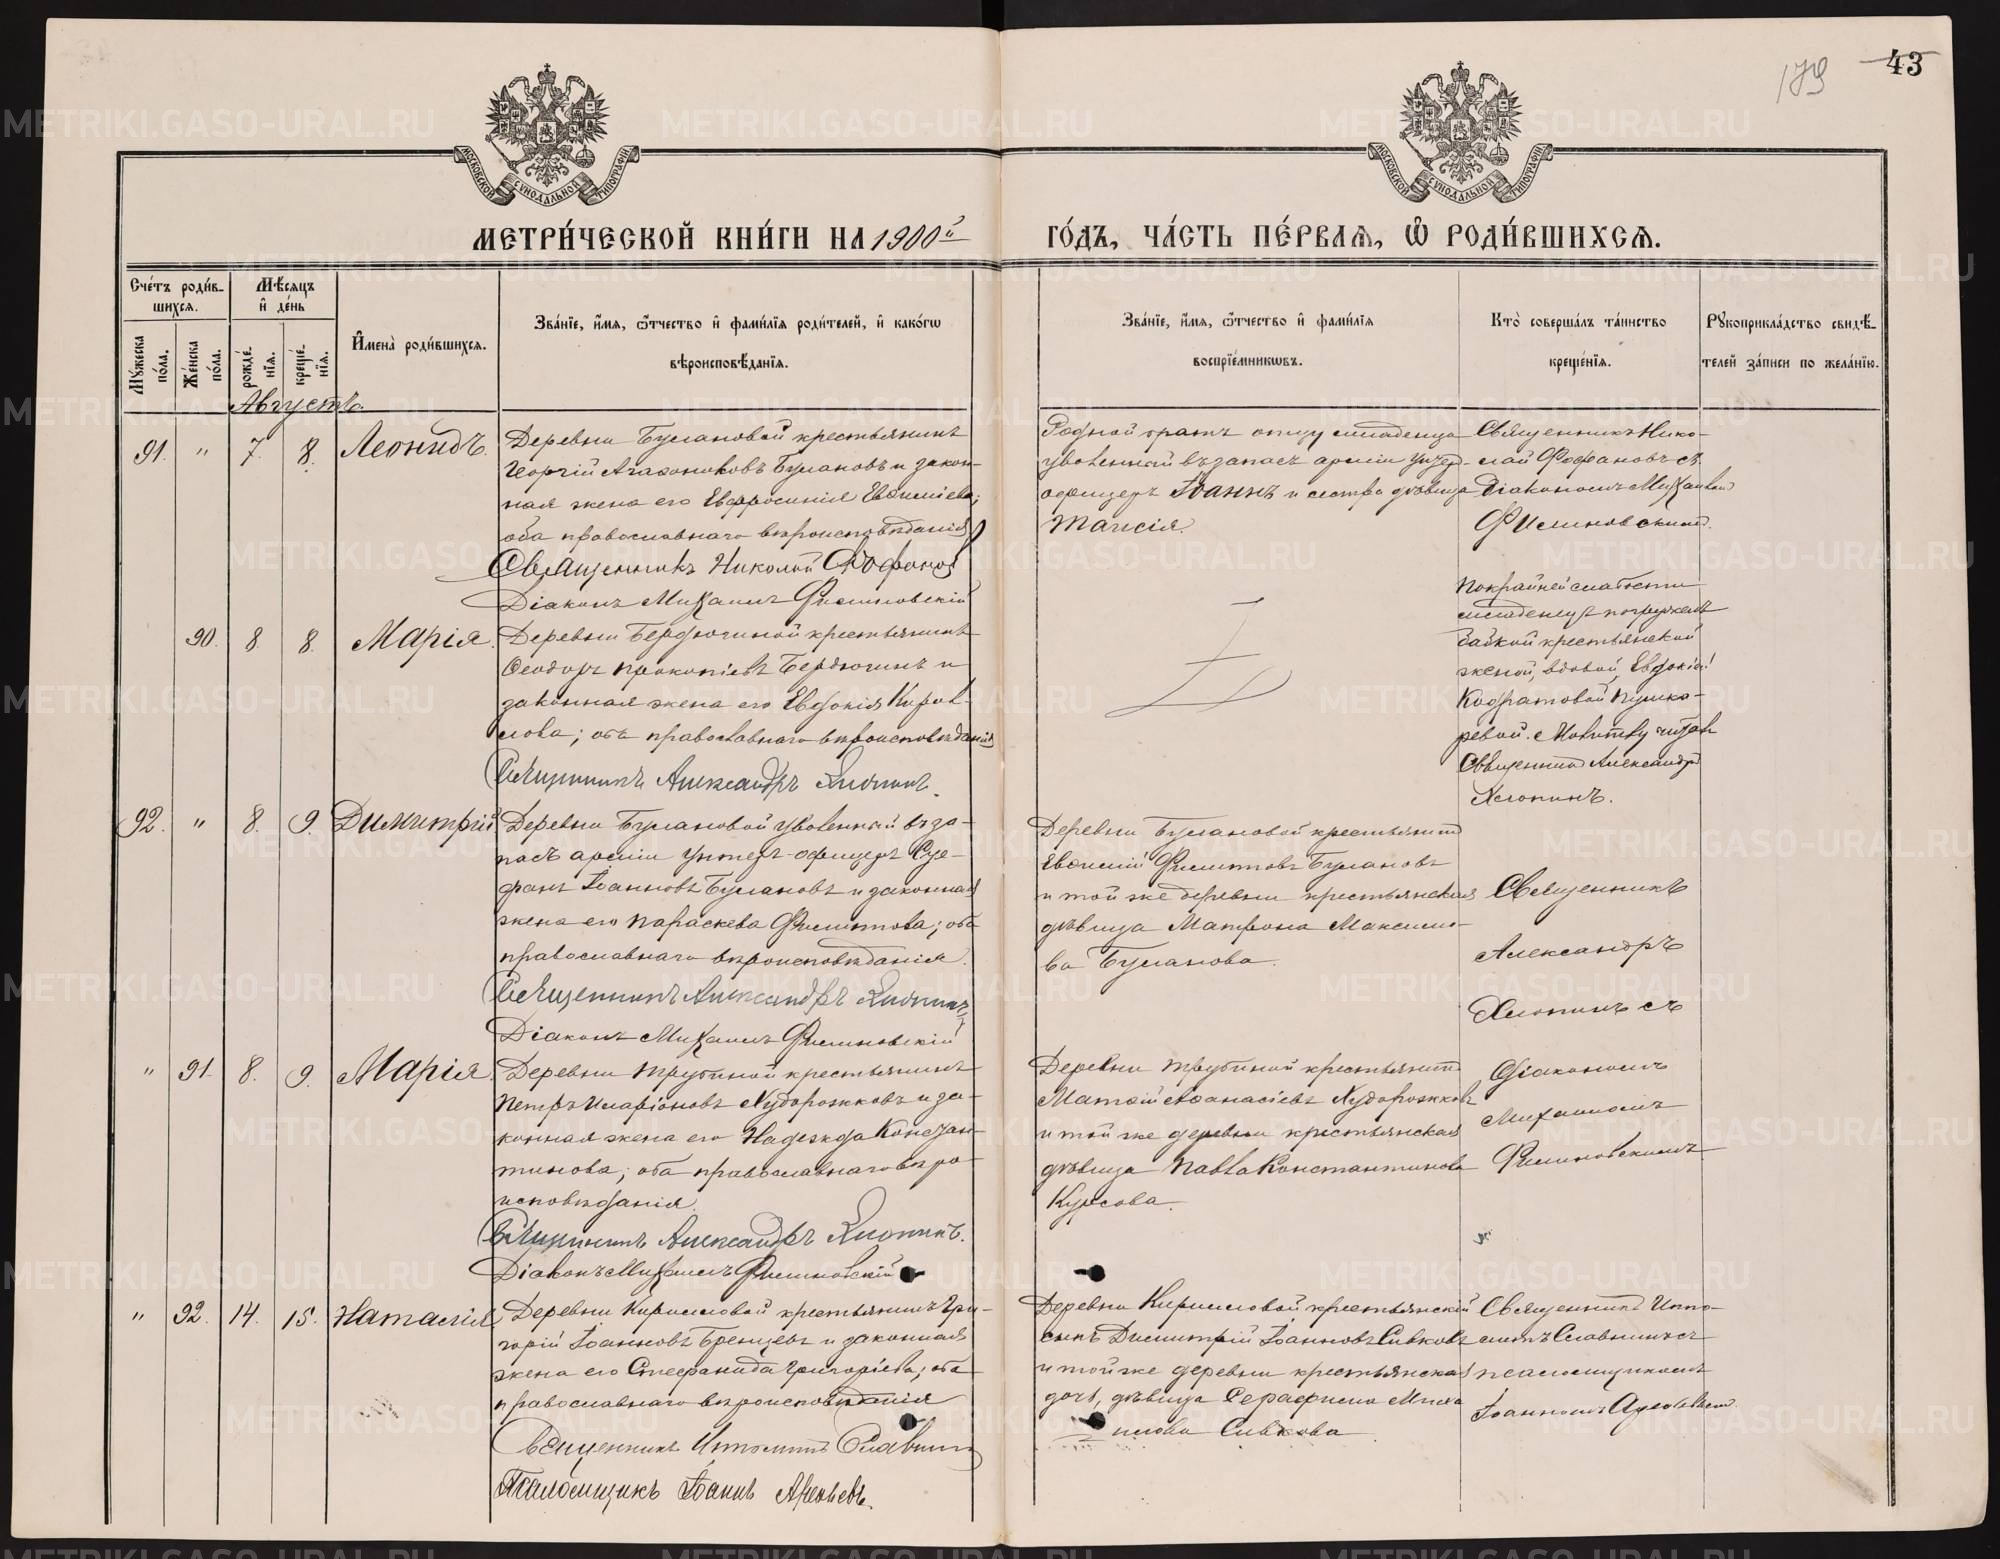 179 43
МОСКОВСКОЙ СѴНОДАЛЬНОЙ ТИПОГРАФІИ
МОСКОВСКОЙ СѴНОДАЛЬНОЙ ТИПОГРАФІИ
МЕТРИ́ЧЕСКОЙ КНИ́ГИ НА 1900й
ГО́ДЪ, ЧА́СТЬ ПЕ́РВАѦ, Ѽ РОДИ́ВШИХСѦ.
Сче́тъ роди́вшихсѧ.
Мꙋ́жеска по́ла.
Же́нска по́ла.
Мѣ́сѧцъ и҆ де́нь
рожде́нїѧ.
креще́нїѧ.
И҆мена̀ роди́вшихсѧ.
Зва́нїе, и҆́мѧ, ѻ҆́тчество и҆ фами́лїѧ роди́телей, и҆ како́гѡ
вѣроисповѣ́данїѧ.
Зва́нїе, и҆́мѧ, ѻ҆́тчество и҆ фами́лїѧ
воспрїе́мникѡвъ.
Кто̀ соверша́лъ та́инство
креще́нїѧ.
Рꙋкоприкла́дство свидѣ́-
телей за́писи по жела́нїю.
Августъ
91. " 7. 8. Леонидъ.
Деревни Булановой крестьянинъ
Георгій Агафониковъ Булановъ и закон-
ная жена его Евфросинія Евѳиміева;
оба православнаго вѣроисповѣданія
Священникъ Николай Фофановъ
Діаконъ Михаилъ Филиновскій
Родной братъ отцу младенца
уволенный въ запасъ арміи унтер-
офицеръ Іоаннъ и сестра дѣвица
Таисія.
Священникъ Нико-
лай Фофановъ съ
Діакономъ Михаиломъ
Филиновскимъ.
90. 8. 8. Марія.
Деревни Бердюгиной крестьянинъ
Ѳеодоръ Прокопіевъ Бердюгинъ и
законная жена его Евдокія Кирил-
лова; оба православнаго вѣроисповѣданія
Священникъ Александръ Хлопинъ.
По крайней слабости
младенца погружена
бабкой крестьянской
женой, вдовой, Евдокіей
Кодратовой Пушка-
ревой. Молитву читалъ
Священникъ Александръ
Хлопинъ.
92. " 8. 9. Димитрій
Деревни Булановой уволенный въ за-
пасъ арміи унтеръ-офицеръ Сте-
фанъ Іоанновъ Булановъ и законная
жена его Параскева Филиппова; оба
православнаго вѣроисповѣданія.
Священникъ Александръ Хлопинъ
Діаконъ Михаилъ Филиновскій
Деревни Булановой крестьянинъ
Евѳимій Филипповъ Булановъ
и той же деревни крестьянская
дѣвица Матрона Максимо-
ва Буланова.
Священникъ
Александръ
Хлопинъ съ
" 91. 8. 9. Марія.
Деревни Трубиной крестьянинъ
Петръ Иларіоновъ Худорожковъ и за-
конная жена его Надежда Констан-
тинова; оба православнаго вѣро-
исповѣданія.
Священникъ Александръ Хлопинъ.
Діаконъ Михаилъ Филиновскій
Деревни Трубиной крестьянинъ
Матѳій Аѳанасіевъ Худорожковъ
и той же деревни крестьянская
дѣвица Павла Константинова
Діакономъ
Михаиломъ
Филиновскимъ.
" 92. 14. 15. Наталія
Деревни Кирилловой крестьянинъ Гри-
горій Іоанновъ и законная
жена его Стефанида Григоріева; оба
православнаго вѣроисповѣданія
Священникъ Ипполитъ Славнинъ
Псаломщикъ Іоаннъ Арефьевъ.
Деревни Кирилловой крестьянскій
сынъ Димитрій Іоанновъ Сивковъ
и той же деревни крестьянская
дочь, дѣвица Серафима Миха-
илова Сивкова
Священникъ Иппо-
литъ Славнинъ съ
псаломщикомъ
Іоанномъ Арефьевымъ.
METRIKI.GASO-URAL.RU